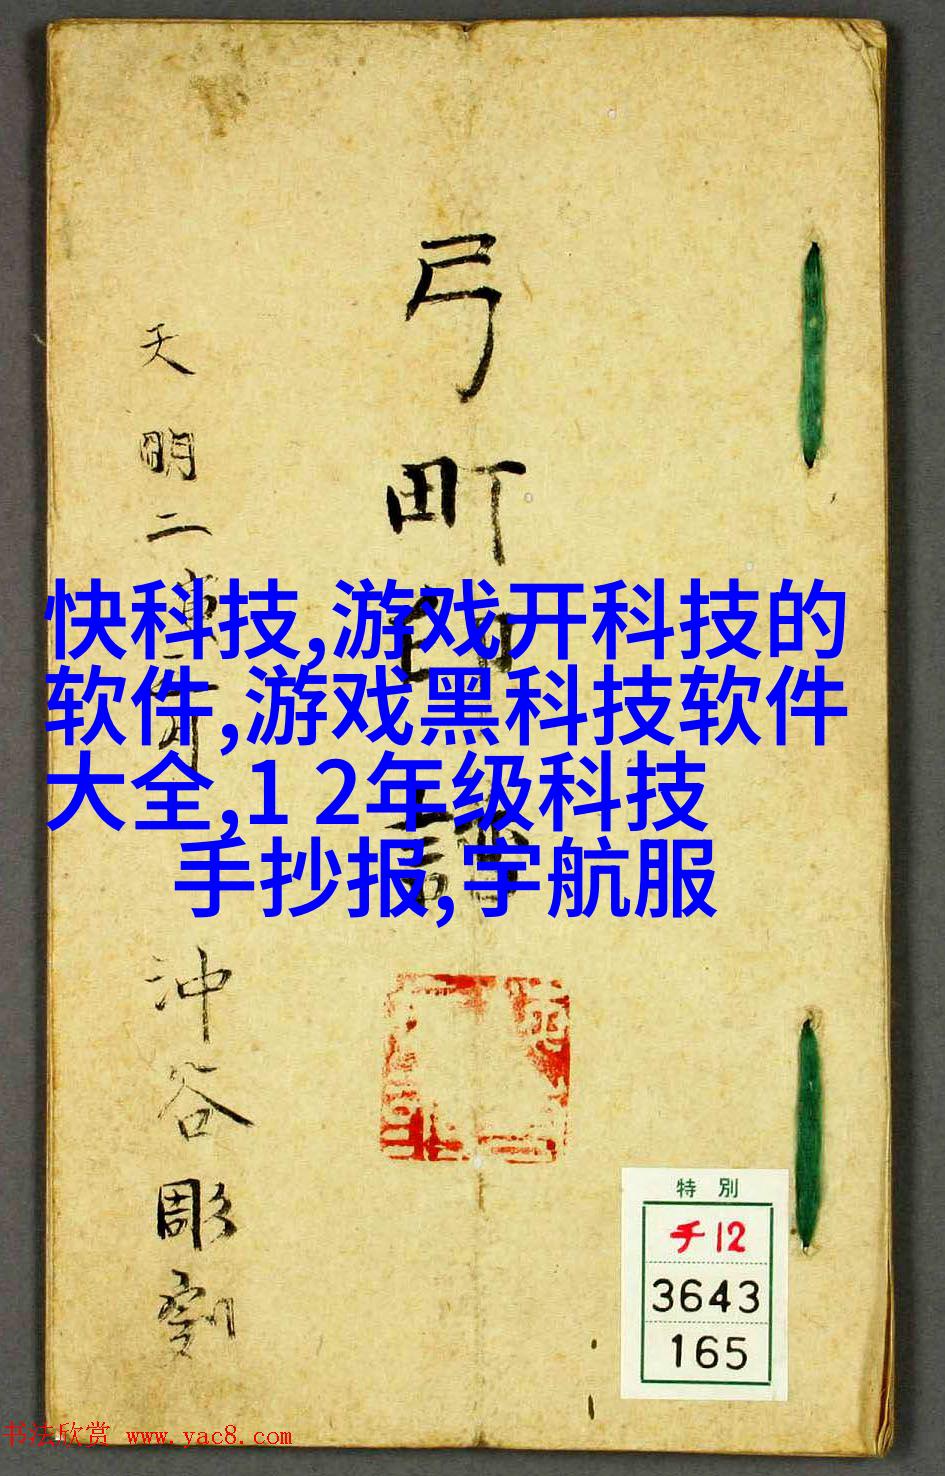 弓町印譜
天明二寅二月
沖谷彫刻
快科技,游戏开科技的
软件,游戏黑科技软件
大全,1 2年级科技
手抄报,宇航服
特別
チ12
3643
165
书法欣赏 www.yac8.com